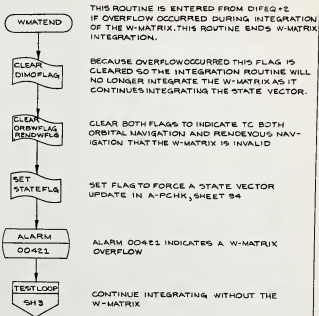 THIS ROUTINE IS ENTERED FROM DIFEQ+2
IF OVERFLOW OCCURRED DURING INTEGRATION
OF THE W-MATRIX. THIS ROUTINE ENDS W-MATRIX
INTEGRATION.
WMATEND
CLEAR
DIMOFLAG
BECAUSE OVERFLOW OCCURRED THIS FLAG IS
CLEARED SO THE INTEGRATION ROUTINE WILL
NO LONGER INTEGRATE THE W-MATRIX AS IT
CONTINUES INTEGRATING THE STATE VECTOR.
CLEAR
ORBWFLG
RENDWFLG
CLEAR BOTH FLAGS TO INDICATE TO BOTH
ORBITAL NAVIGATION AND RENDEVOUS NAV-
IGATION THAT THE W-MATRIX IS INVALID
SET
STATEFLG
SET FLAG TO FORCE A STATE VECTOR
UPDATE IN A-PCHK, SHEET 54
ALARM
00421
ALARM 00421 INDICATES A W-MATRIX
OVERFLOW
TESTLOOP
SH3
CONTINUE INTEGRATING WITHOUT THE
W-MATRIX